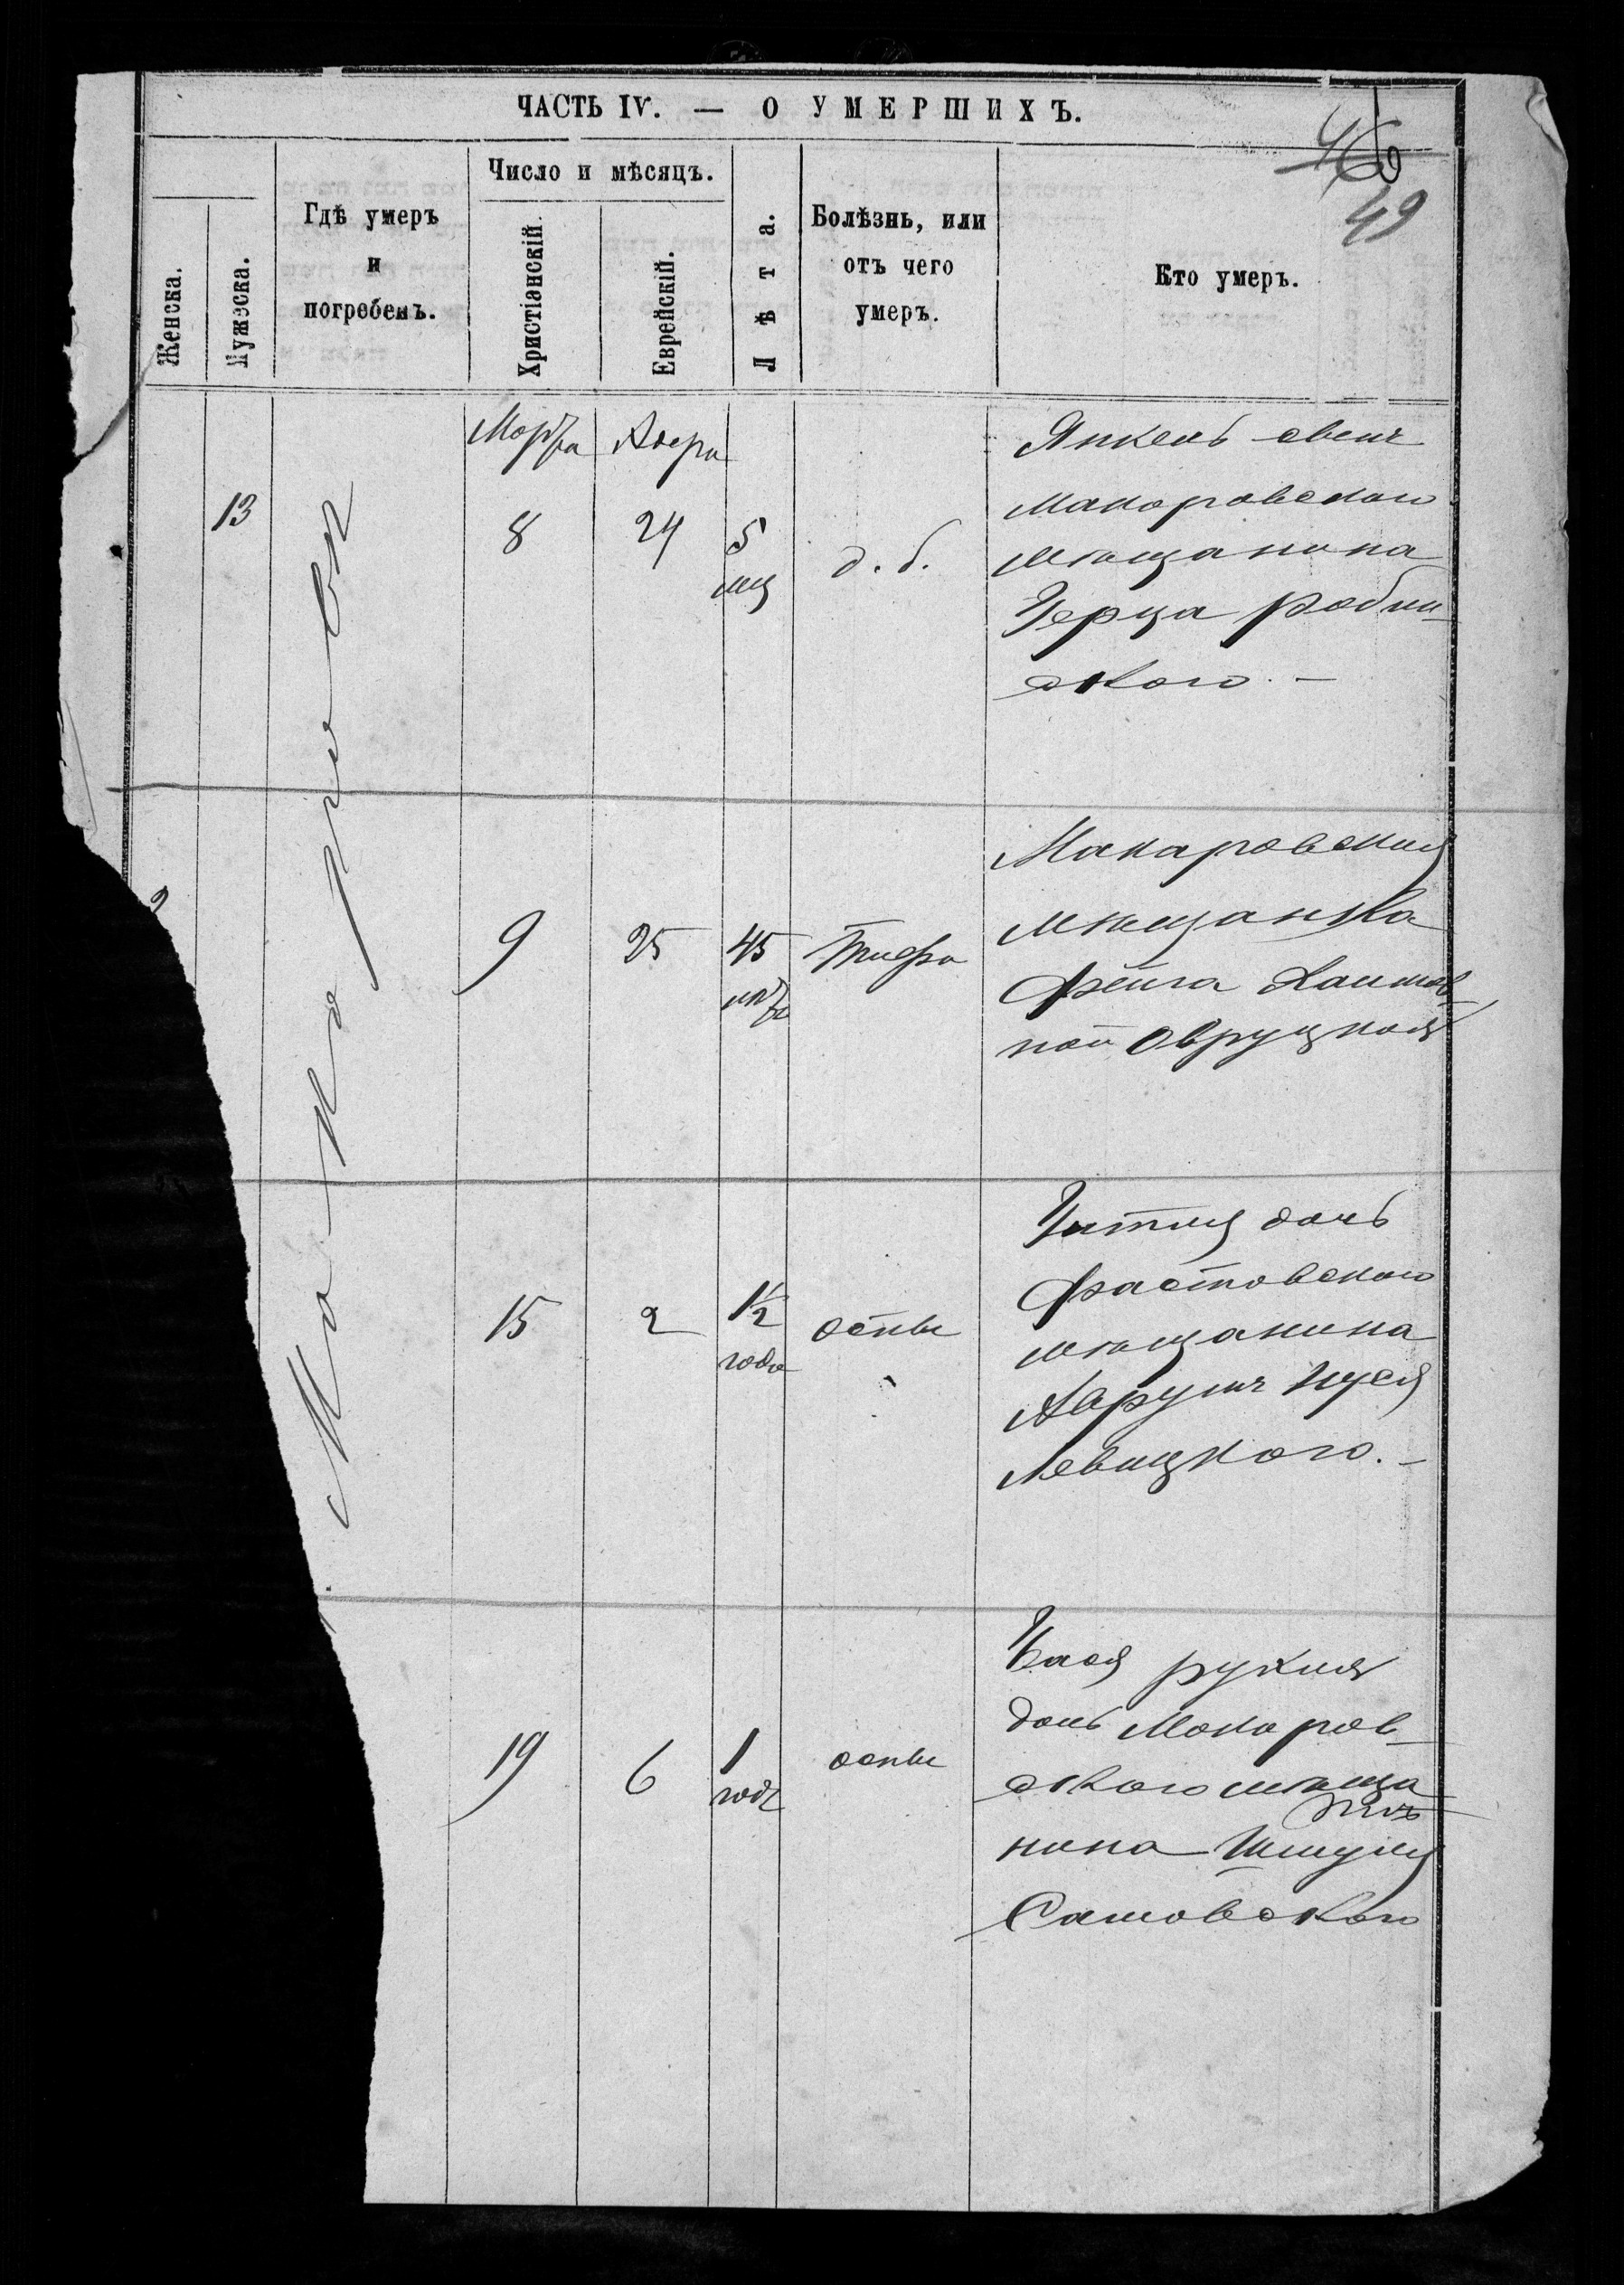 ЧАСТЬ IV. — О УМЕРШИХЪ.
46
49
Женска.
Мужеска.
Гдѣ умеръ
и
погребенъ.
Число и мѣсяцъ.
Христіанскій.
Еврейскій.
Лѣта.
Болѣзнь, или
отъ чего
умеръ.
Кто умеръ.
Марта
Адера
Макаровѣ
13
8
24
5
мц
д. б.
Янкель сынъ
Макаровскаго
мѣщанина
Герца
скаго. —
9
25
45
лѣтъ
Тифа
Макаровская
мѣщанка
Фейга Хаимов-
ной Овруцкая
15
2
1½
года
оспы
Гитля дочь
Фастовскаго
мѣщанина
Аврумъ Нуся
Левицкаго. —
19
6
1
годъ
оспы
Бася рухля
дочь Макаров-
скаго мѣща
нина Шмуля
Самовскаго